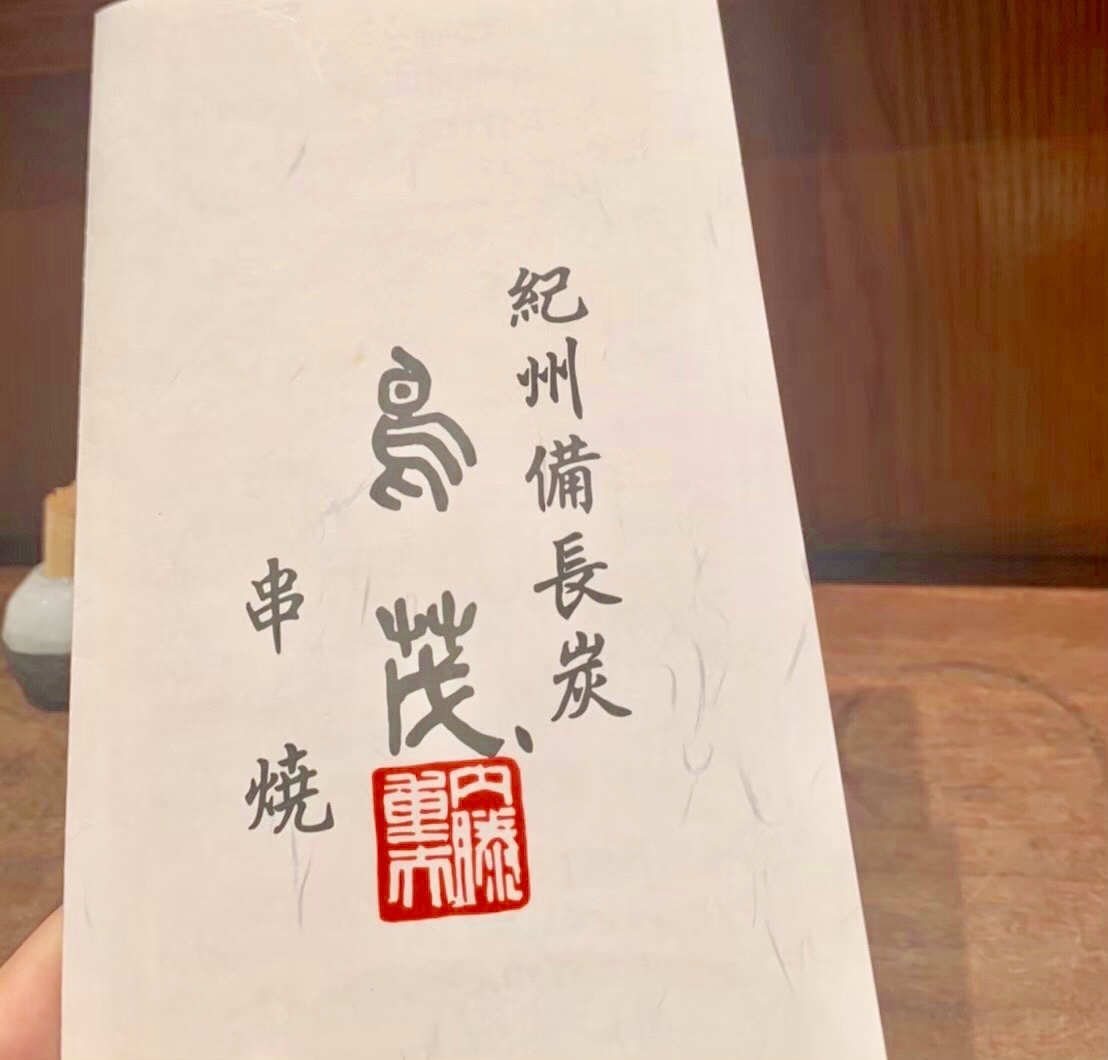 紀州備長炭
鳥茂
串焼
内藤
重夫